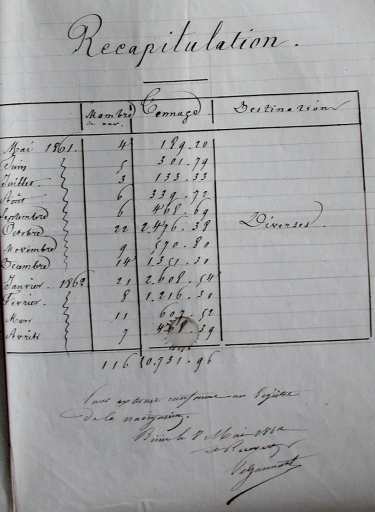 Recapitulation.
Nombre Tonnage Destination
de nav.
Mai 1861. 4 189.20
Juin 5 301.79
Juillet 3 133.33
Août 6 339.72
Septembre 6 468.69
Octobre 22 2,476.38 Diverses.
Novembre 9 570.80
Décembre 14 1351.30
Janvier 1862 21 2.608.54
Février. 8 1.216.30
Mars 11 52
Avril 7 39
116 10.731.96
Pour extrait conforme au
de la
le 8 Mai